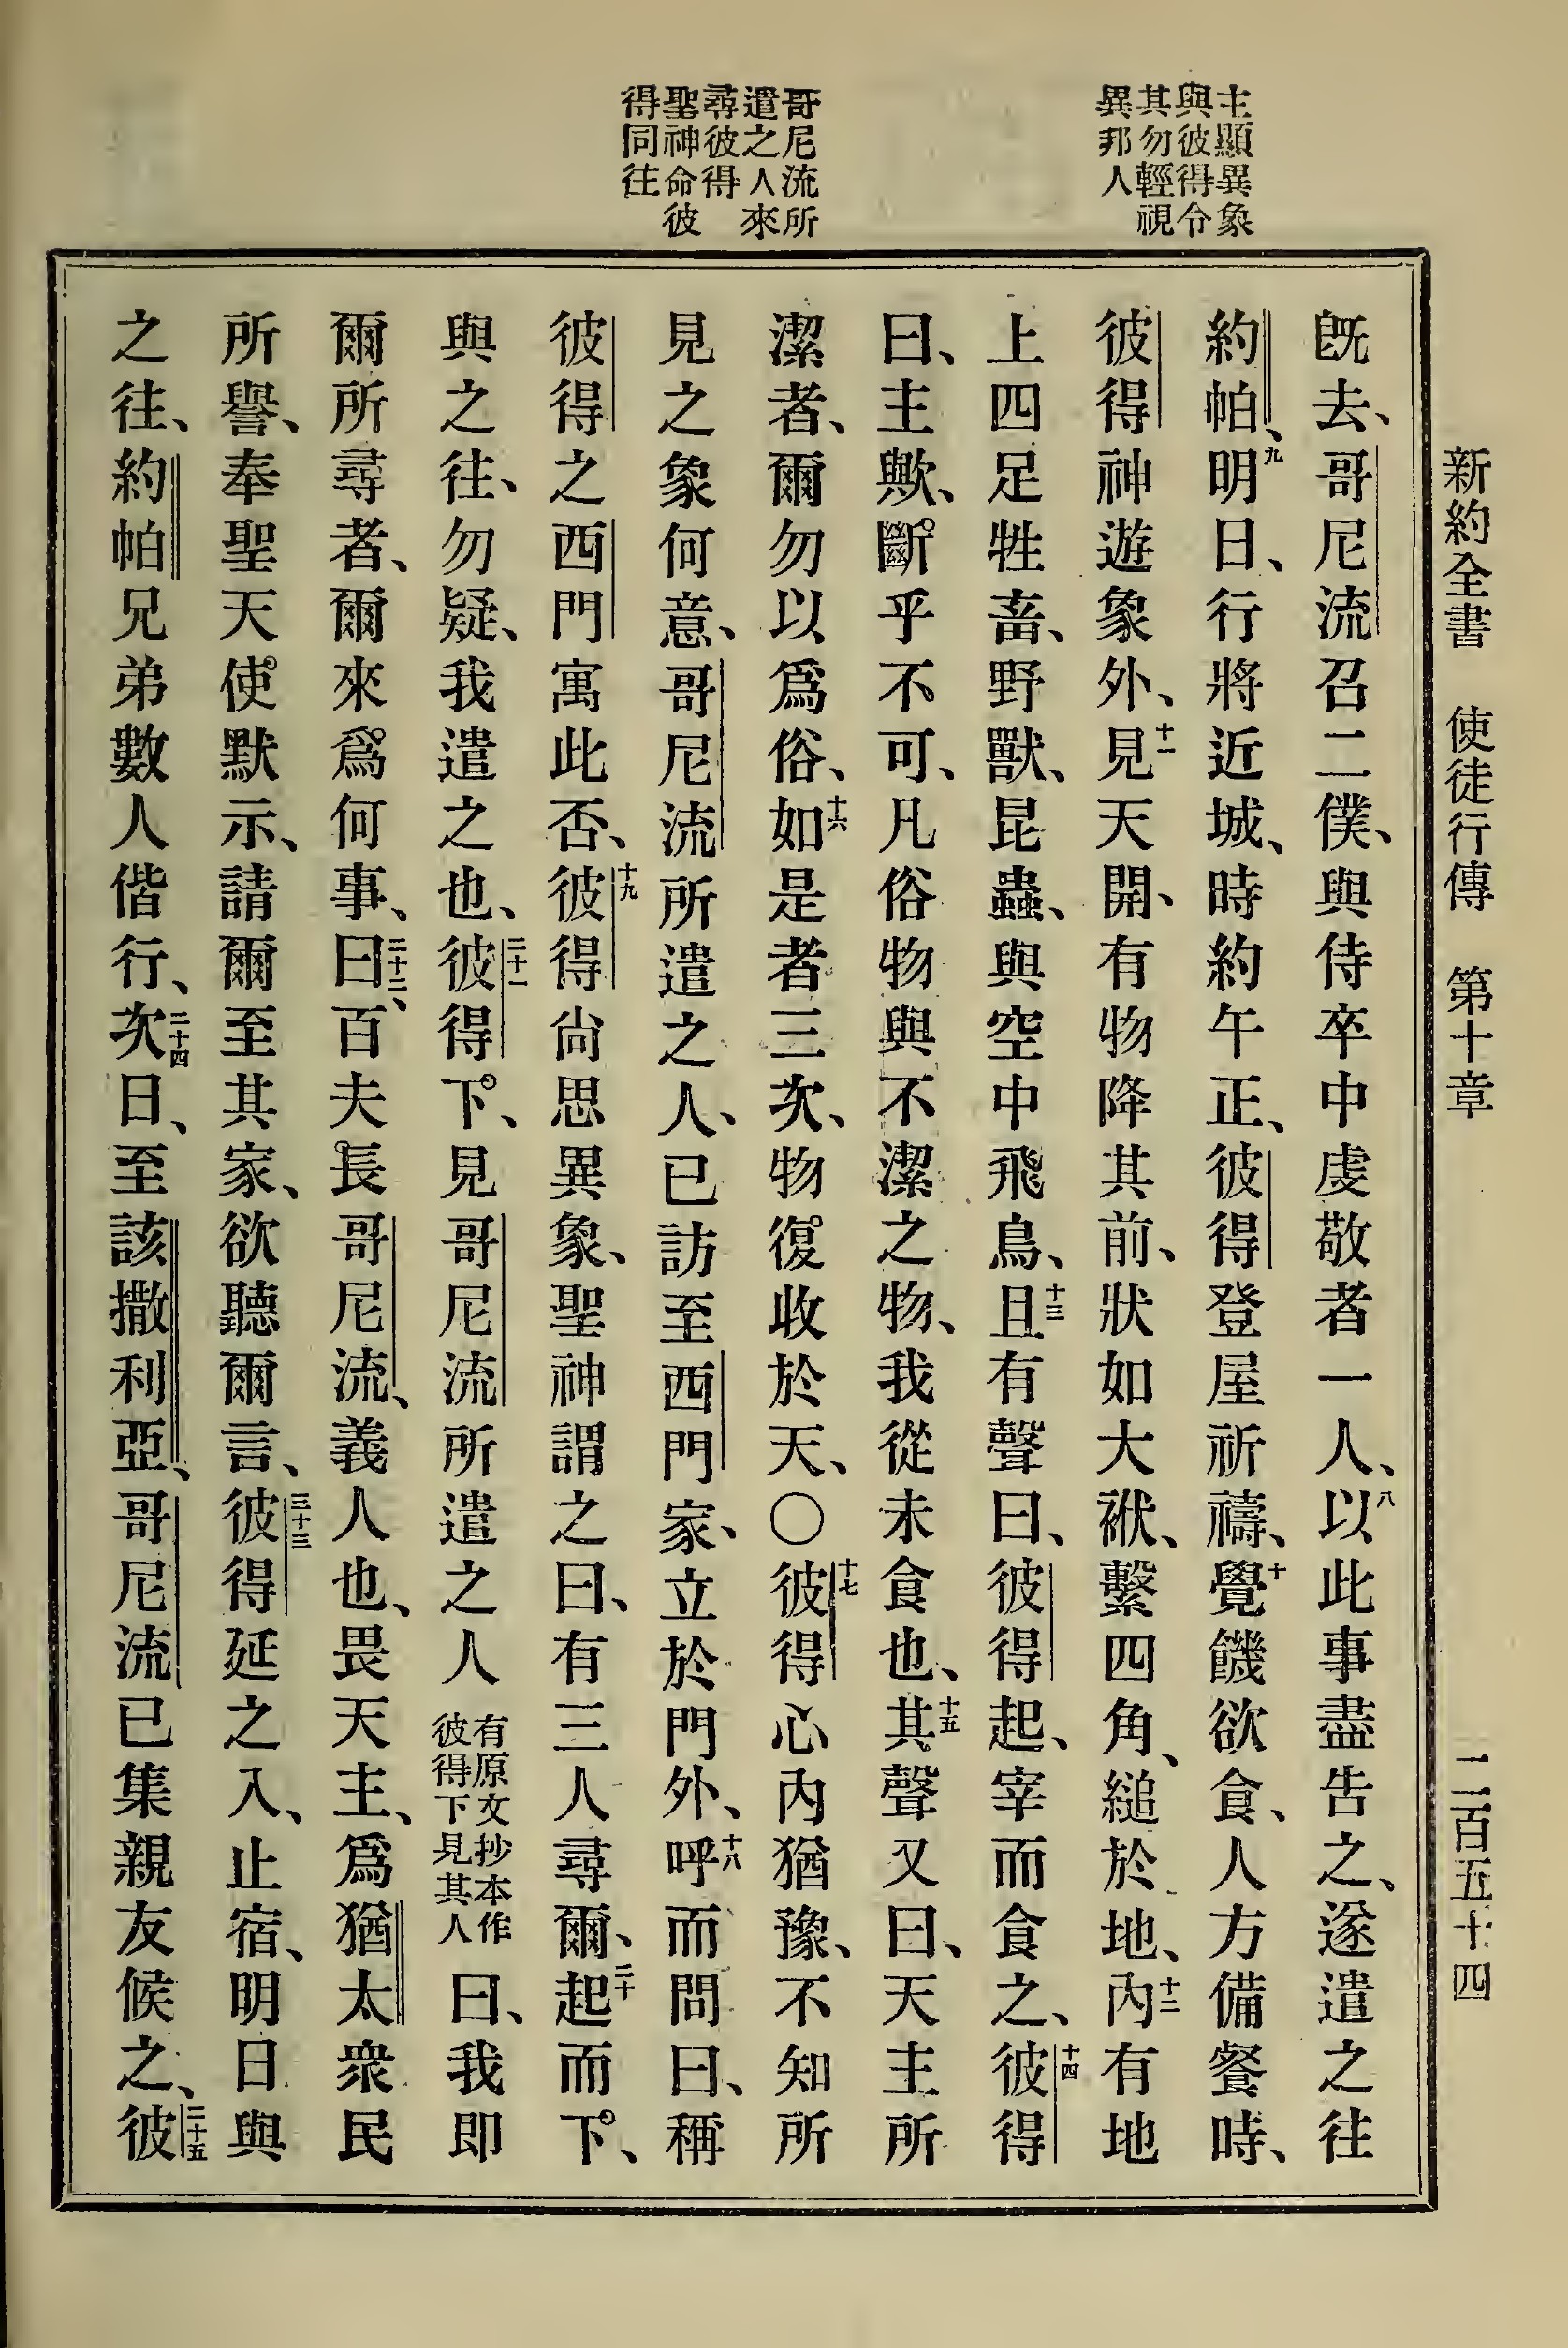 新約全書 使徒行傳 第十章 二百五十四
主顯異象
與彼得令
其勿輕視
異邦人
哥尼流所
遣之人來
尋彼得
聖神命彼
得同往
既去、哥尼流召二僕、與侍卒中虔敬者一人、八以此事盡告之、遂遣之往
約帕、九明日、行將近城、時約午正、彼得登屋祈禱、十覺饑欲食、人方備餐時、
彼得神遊象外、十一見天開、有物降其前、狀如大袱、繫四角、縋於地、十二內有地
上四足牲畜、野獸、昆蟲、與空中飛鳥、十三且有聲曰、彼得起、宰而食之、十四彼得
曰、主歟、斷乎不可、凡俗物與不潔之物、我從未食也、十五其聲又曰、天主所
潔者、爾勿以爲俗、十六如是者三次、物復收於天、〇十七彼得心內猶豫、不知所
見之象何意、哥尼流所遣之人、已訪至西門家、立於門外、十八呼而問曰、稱
彼得之西門寓此否、十九彼得尙思異象、聖神謂之曰、有三人尋爾、二十起而下、
與之往、勿疑、我遣之也、二十一彼得下、見哥尼流所遣之人有原文抄本作彼得下見其人曰、我即
爾所尋者、爾來爲何事、二十二曰、百夫長哥尼流、義人也、畏天主、爲猶太衆民
所譽、奉聖天使默示、請爾至其家、欲聽爾言、二十三彼得延之入、止宿、明日與
之往、約帕兄弟數人偕行、二十四次日、至該撒利亞、哥尼流已集親友候之、二十五彼